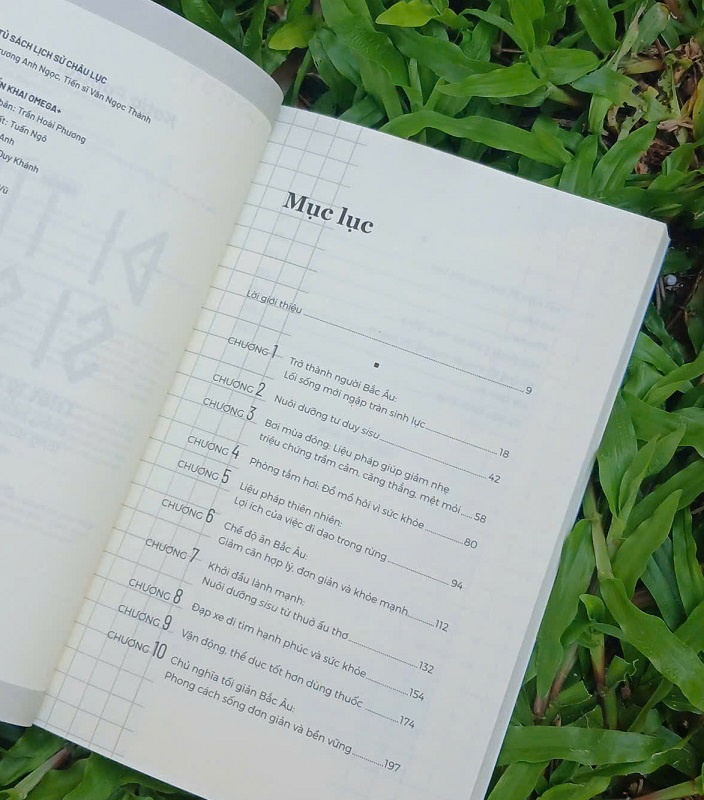 TỦ SÁCH LỊCH SỬ CHÂU LỤC
Trương Anh Ngọc, Tiến sĩ Văn Ngọc Thành
KHAI OMEGA+
Trần Hoài Phương
Tuấn Ngô
Anh
Duy Khánh
Vũ
Mục lục
Lời giới thiệu 9
CHƯƠNG 1 Trở thành người Bắc Âu:
Lối sống mới ngập tràn sinh lực 18
CHƯƠNG 2 Nuôi dưỡng tư duy sisu 42
CHƯƠNG 3 Bơi mùa đông: Liệu pháp giúp giảm nhẹ
triệu chứng trầm cảm, căng thẳng, mệt mỏi 58
CHƯƠNG 4 Phòng tắm hơi: Đổ mồ hôi vì sức khỏe 80
CHƯƠNG 5 Liệu pháp thiên nhiên:
Lợi ích của việc đi dạo trong rừng 94
CHƯƠNG 6 Chế độ ăn Bắc Âu:
Giảm cân hợp lý, đơn giản và khỏe mạnh 112
CHƯƠNG 7 Khởi đầu lành mạnh:
Nuôi dưỡng sisu từ thuở ấu thơ 132
CHƯƠNG 8 Đạp xe đi tìm hạnh phúc và sức khỏe 154
CHƯƠNG 9 Vận động, thể dục tốt hơn dùng thuốc 174
CHƯƠNG 10 Chủ nghĩa tối giản Bắc Âu:
Phong cách sống đơn giản và bền vững 197